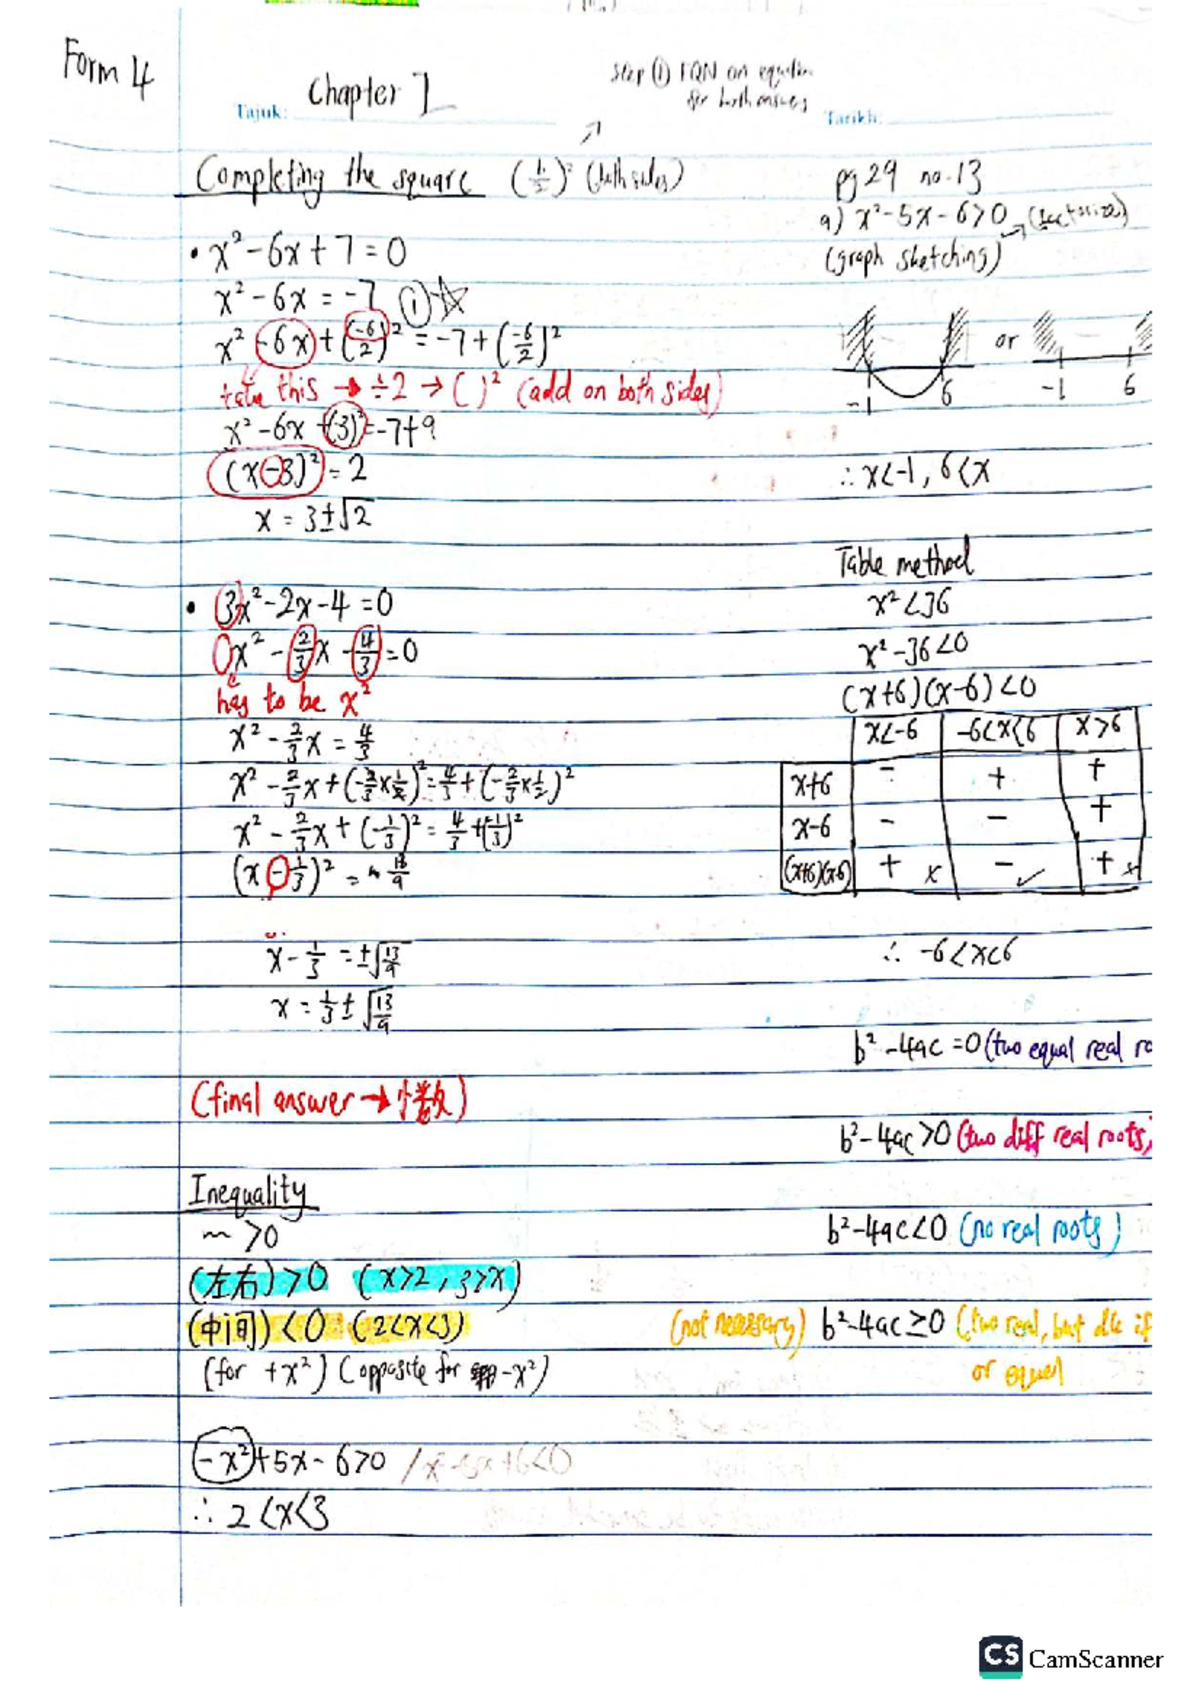 Form 4
Chapter 1
Tajuk:
Step (1) on equation
for both
Tarikh:
Completing the square (b/2)² (both sides)
• x² - 6x + 7 = 0
x² - 6x = -7 ①☆
x² - 6x + (-6/2)² = -7 + (-6/2)²
take this → ÷2 → ( )² (add on both sides)
x² - 6x + (3)² = -7+9
(x-3)² = 2
x = 3±√2
• 3x² - 2x - 4 = 0
x² - 2/3x - 4/3 = 0
has to be x²
x² - 2/3x = 4/3
x² - 2/3x + (-2/3 × 1/2)² = 4/3 + (-2/3 × 1/2)²
x² - 2/3x + (-1/3)² = 4/3 + (-1/3)²
(x - 1/3)² = 13/9
x - 1/3 = ±√13/9
x = 1/3 ± √13/9
(final answer → 小数)
Inequality
~ >0
(左右) >0 (x>2, 3>x)
(中间) <0 (2<x<3)
(for +x²) (opposite for -x²)
-x² + 5x - 6>0 / x² - 5x + 6<0
∴ 2<x<3
pg 29 no. 13
a) x² - 5x - 6>0 → (factorize)
(graph sketching)
-1 6 or -1 6
∴ x<-1, 6<x
Table method
x² <36
x² - 36<0
(x+6)(x-6)<0
x<-6 -6<x<6 x>6
x+6 - + +
x-6 - - +
(x+6)(x-6) + x - ✓ + x
∴ -6<x<6
b² - 4ac = 0 (two equal real ro
b² - 4ac >0 (two diff real roots)
b² - 4ac<0 (no real roots)
(not necessary) b² - 4ac ≥0 (two real, but dk if
or equal
CS CamScanner